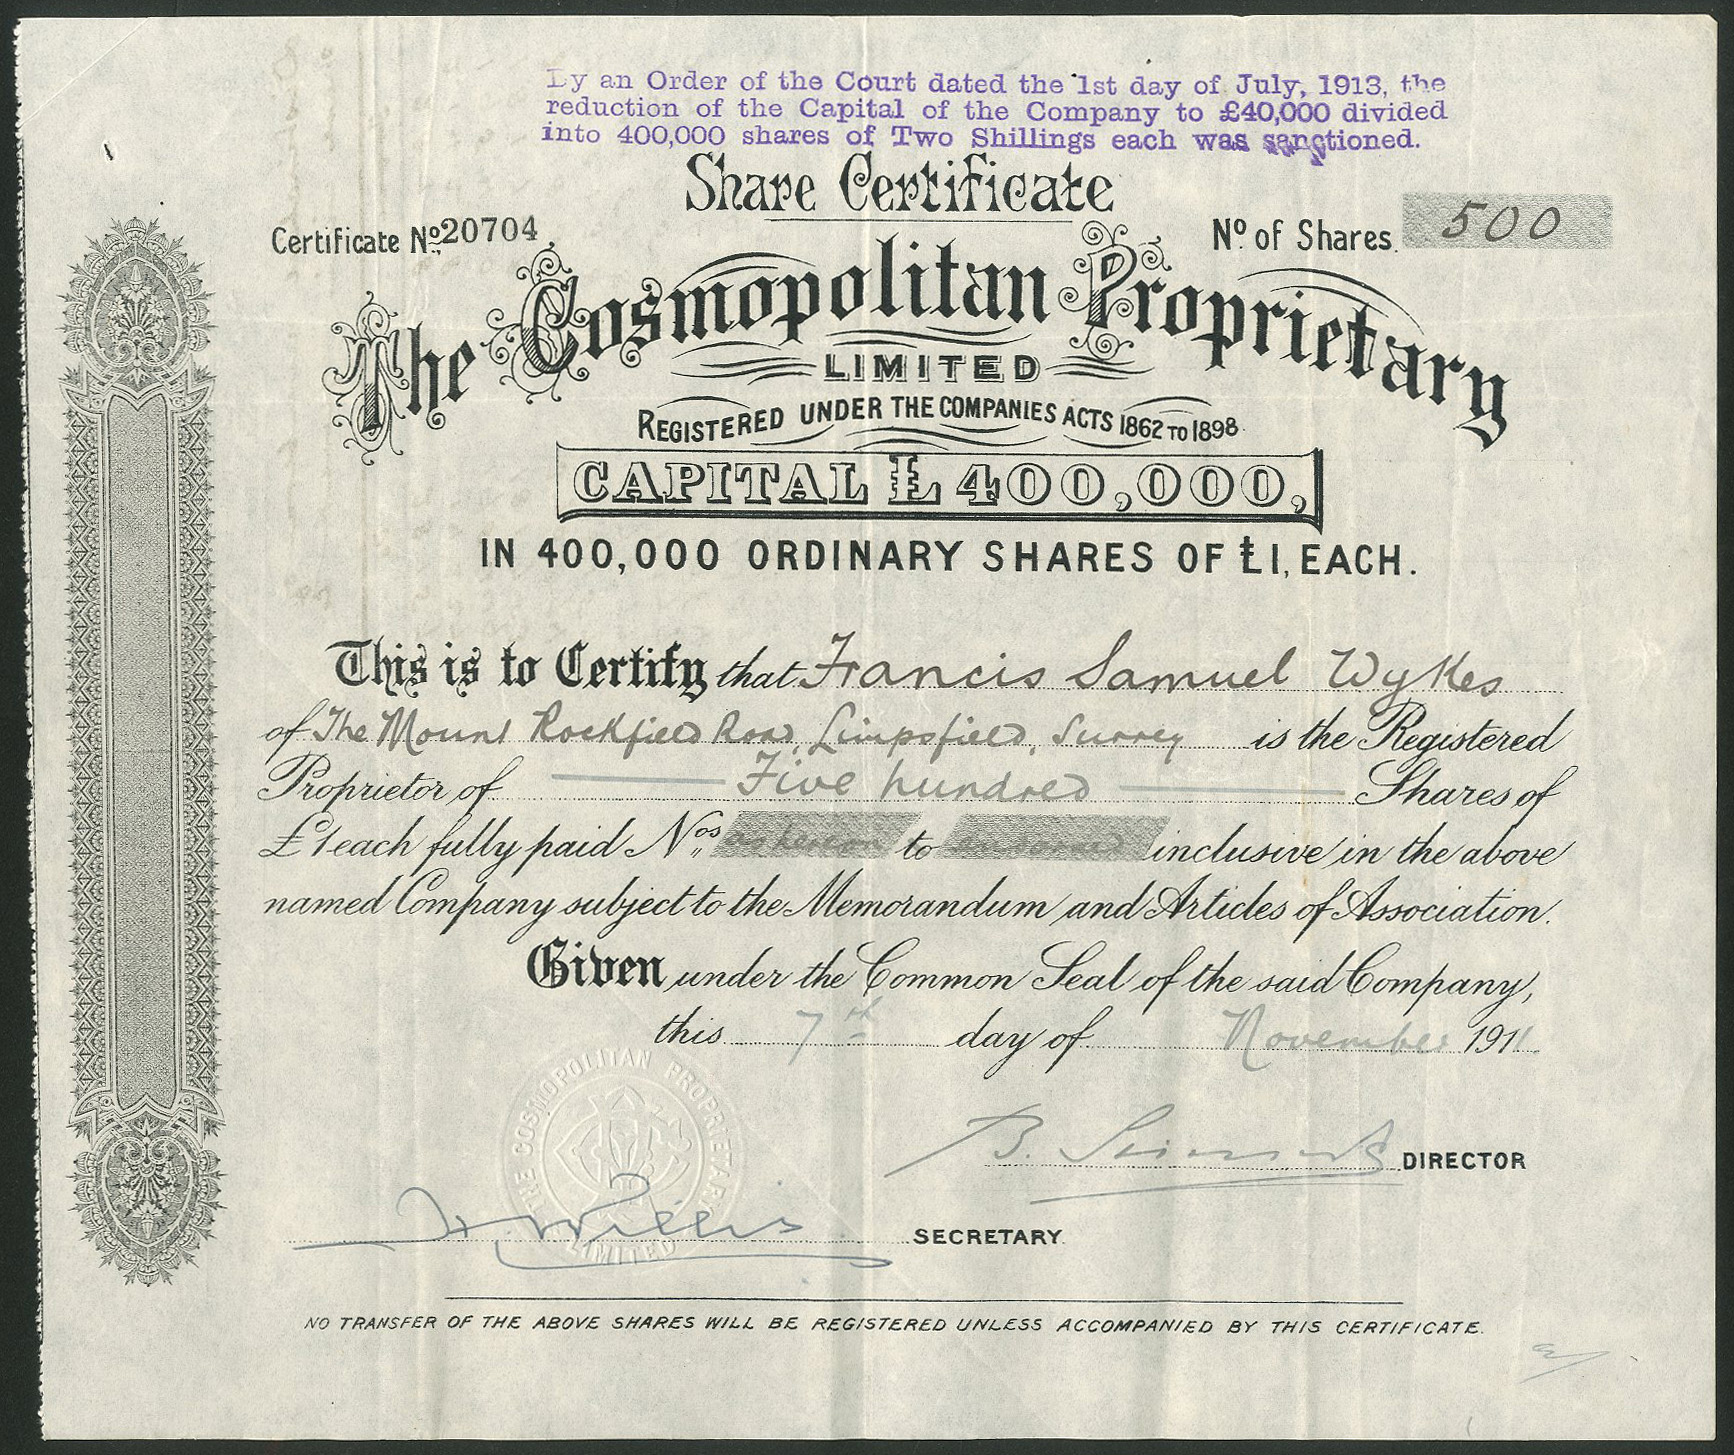 By an Order of the Court dated the 1st day of July, 1913, the
reduction of the Capital of the Company to £40,000 divided
into 400,000 shares of Two Shillings each was sanctioned.
Share Certificate
Certificate No. 20704
No. of Shares 500
The Cosmopolitan Proprietary
LIMITED
REGISTERED UNDER THE COMPANIES ACTS 1862 TO 1898
CAPITAL £400,000,
IN 400,000 ORDINARY SHARES OF £1, EACH.
This is to Certify that Francis Samuel Wykes
of The Mount Rockfield Road, Limpsfield, Surrey is the Registered
Proprietor of Five hundred Shares of
£1 each fully paid Nos. as hereon to endorsed inclusive in the above
named Company subject to the Memorandum and Articles of Association.
Given under the Common Seal of the said Company,
this 7th day of November 1911.
THE COSMOPOLITAN PROPRIETARY
LIMITED
B. DIRECTOR
H. Willis SECRETARY
NO TRANSFER OF THE ABOVE SHARES WILL BE REGISTERED UNLESS ACCOMPANIED BY THIS CERTIFICATE.